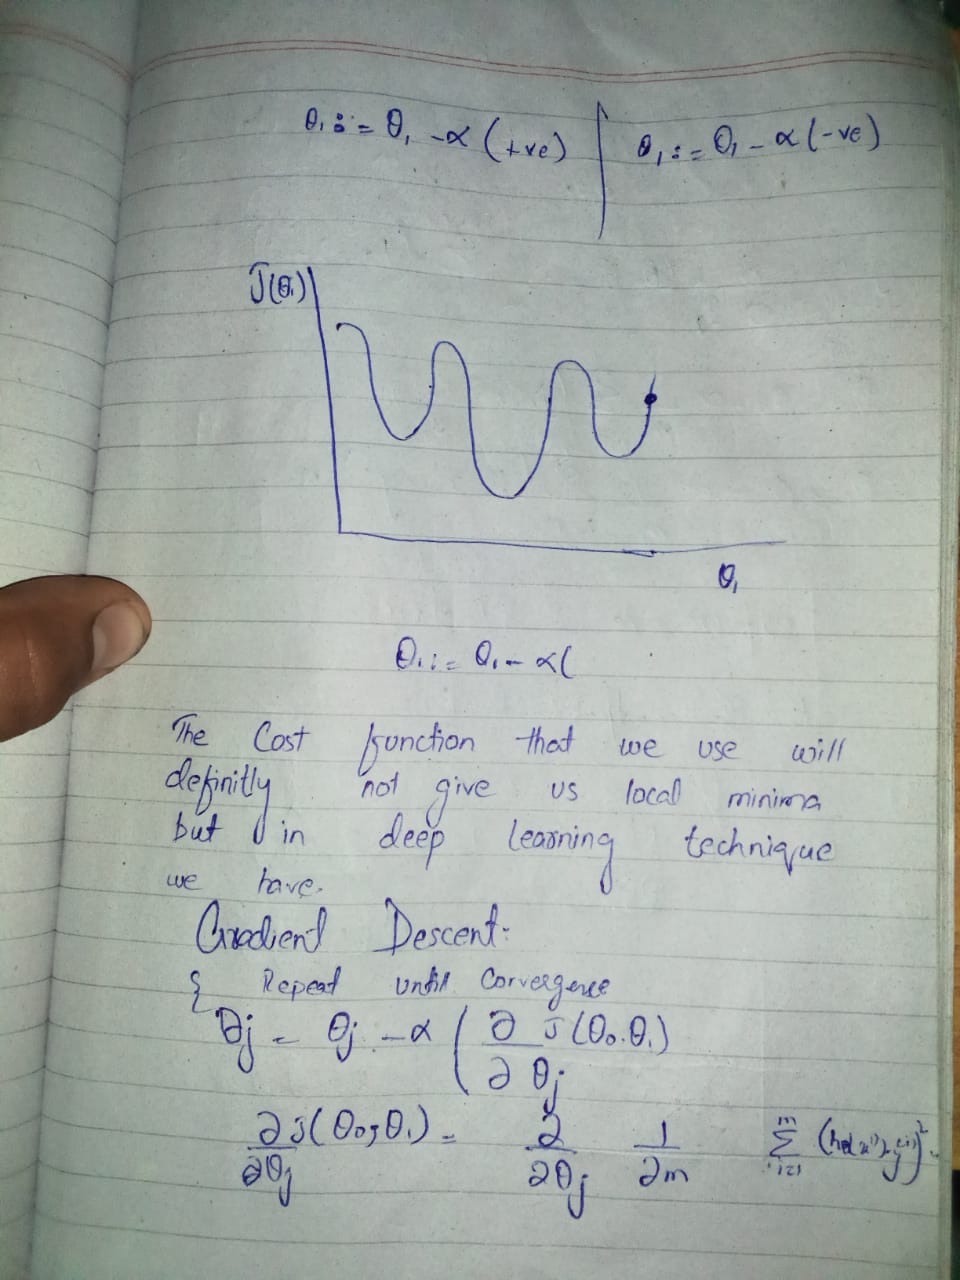 θ₁ := θ₁ -α (+ve) | θ₁ := θ₁ - α (-ve)
J(θ₁)
θ₁
θ₁ := θ₁ - α(
The Cost function that we use will
definitly not give us local minima
but in deep learning technique
we have.
Gradient Descent:
{ Repeat until Convergence
θj = θj - α ( ∂/∂θj J(θ₀.θ₁)
∂/∂θj J(θ₀,θ₁) = ∂/∂θj 1/2m Σᵢ₌₁ᵐ (hθ(x⁽ⁱ⁾)-y⁽ⁱ⁾)².